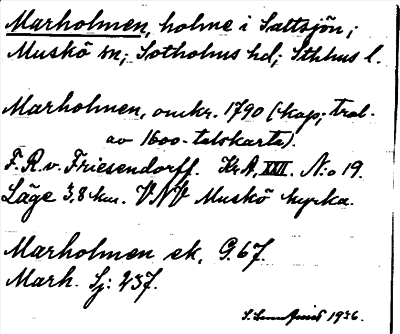 Marholmen, holme i Saltsjön;
Muskö sn; Sotholms hd; Sthlms l.
Marholmen, omkr. 1790 (-kop; trol.
av 1600-talskarta).
F. R. v. Friesendorff. Kr A, XXII. N:o 19.
Läge 3,8 km. VNV Muskö kyrka.
Marholmen ek. G. 67.
Marh. Sj: 237.
1936.